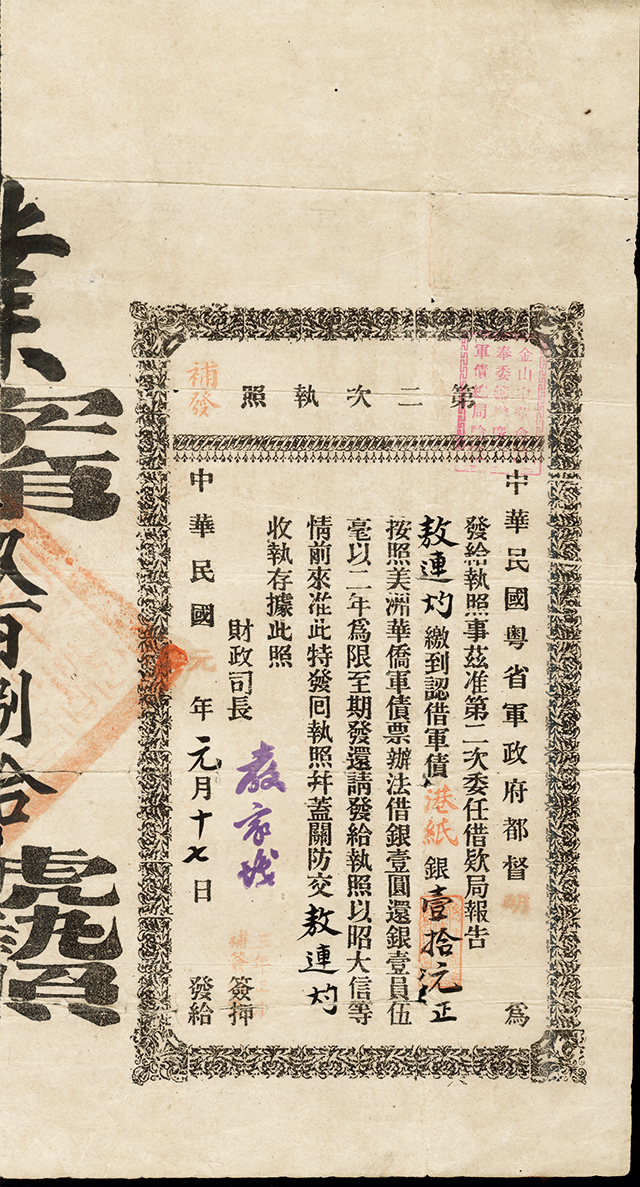 第二次執照
補發
中華民國粵省軍政府都督 明 爲
發給執照事茲准第二次委任借欵局報告
敖連灼繳到認借軍債港紙銀壹拾元正
按照美洲華僑軍債票辦法借銀壹圓還銀壹員伍
毫以二年爲限至期發還請發給執照以昭大信等
情前來准此特發囘執照幷蓋關防交敖連灼
收執存據此照
財政司長 簽押
中華民國元年元月十七日發給
業字第
百捌拾
號執照